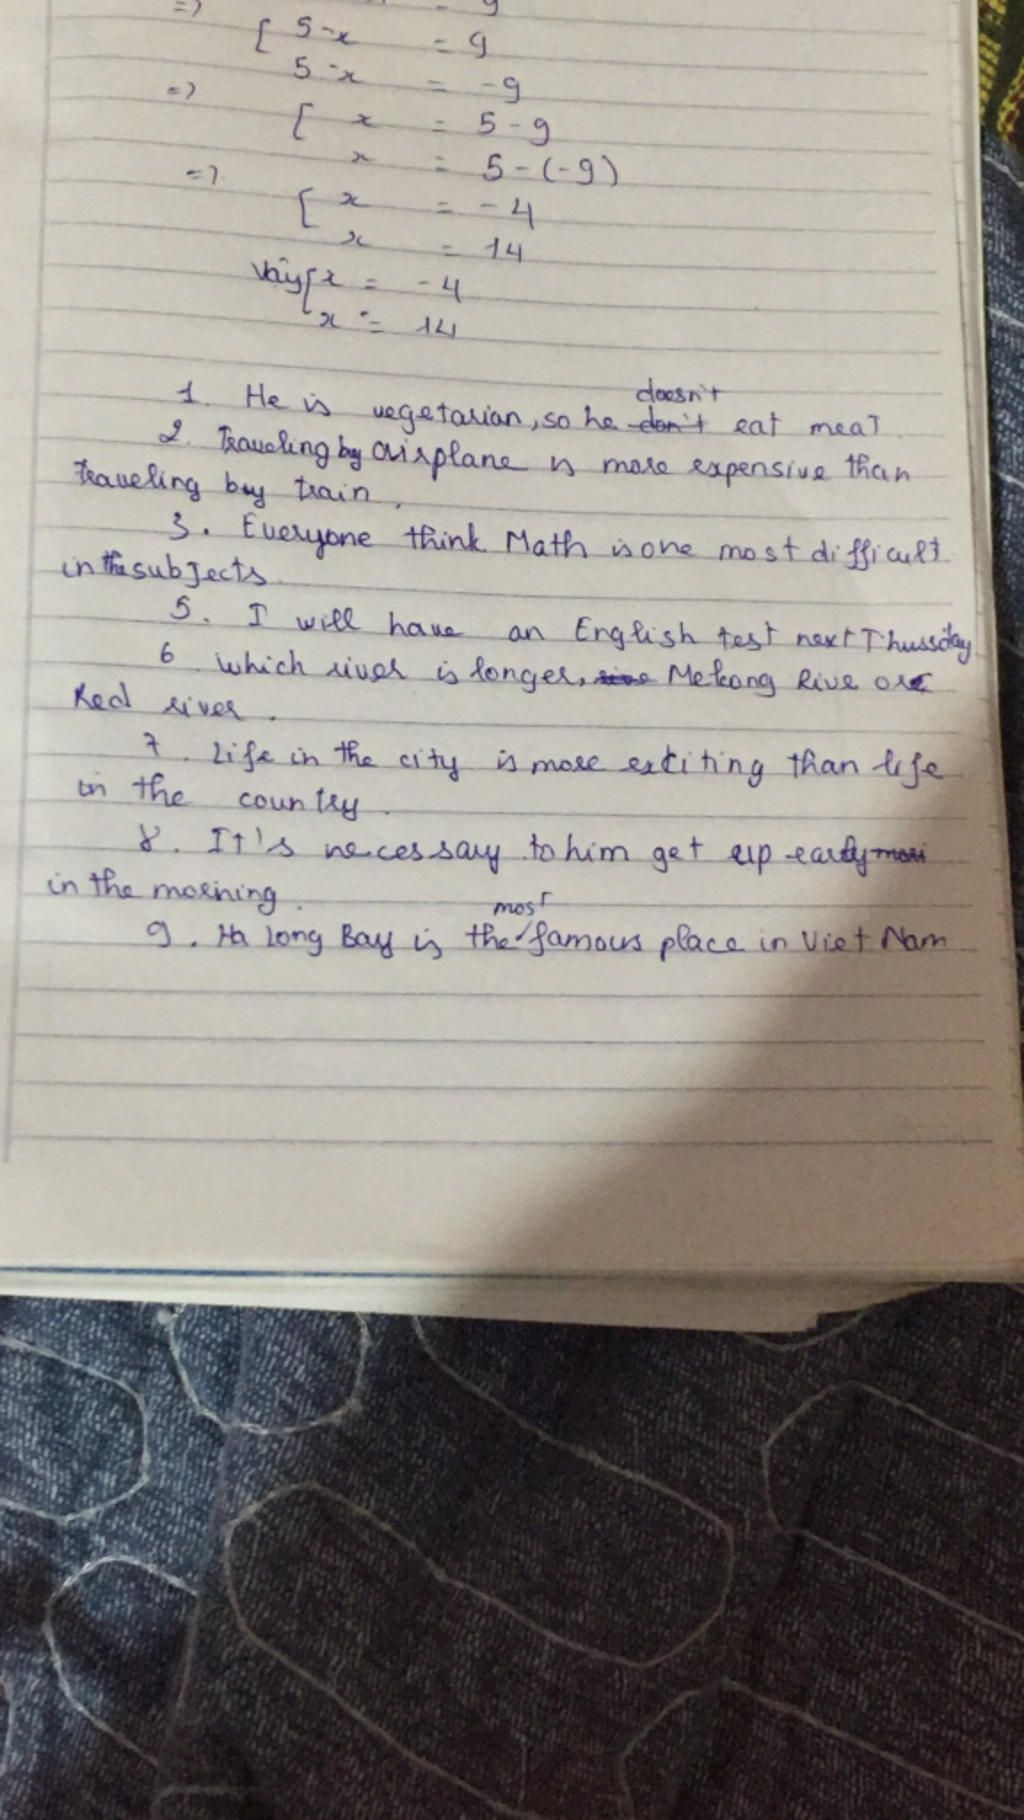 => [ 5-x = 9
5-x = -9
=> [ x = 5-9
x = 5-(-9)
=> [ x = -4
x = 14
Vậy [ x = -4
x = 14
1. He is vegetarian, so he doesn't eat meat
2. Traveling by airplane is more expensive than
traveling by train.
3. Everyone think Math is one most difficult
in the subjects
5. I will have an English test next Thussday
6 which river is longer, Mekong Rive or
Red river.
7. Life in the city is more exciting than life
in the country.
8. It's necessary to him get up early
in the morning.
9. Ha Long Bay is the most famous place in Viet Nam